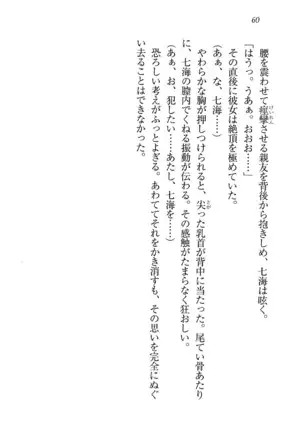 60
腰を震わせて痙攣させる親友を背後から抱きしめ、七海は呟く。
「はうっ。うあぁ。おおお……」
その直後に彼女は絶頂を極めていた。
（あぁ、な、七海……）
やわらかな胸が押しつけられると、尖った乳首が背中に当たった。尾てい骨あたり
に、七海の膣内でくねる振動が伝わる。その感触がたまらなく狂おしい。
（あぁ、お、犯したい……あたし、七海を……）
恐ろしい考えがふっとよぎる。あわててそれをかき消すも、その思いを完全にぬぐ
い去ることはできなかった。